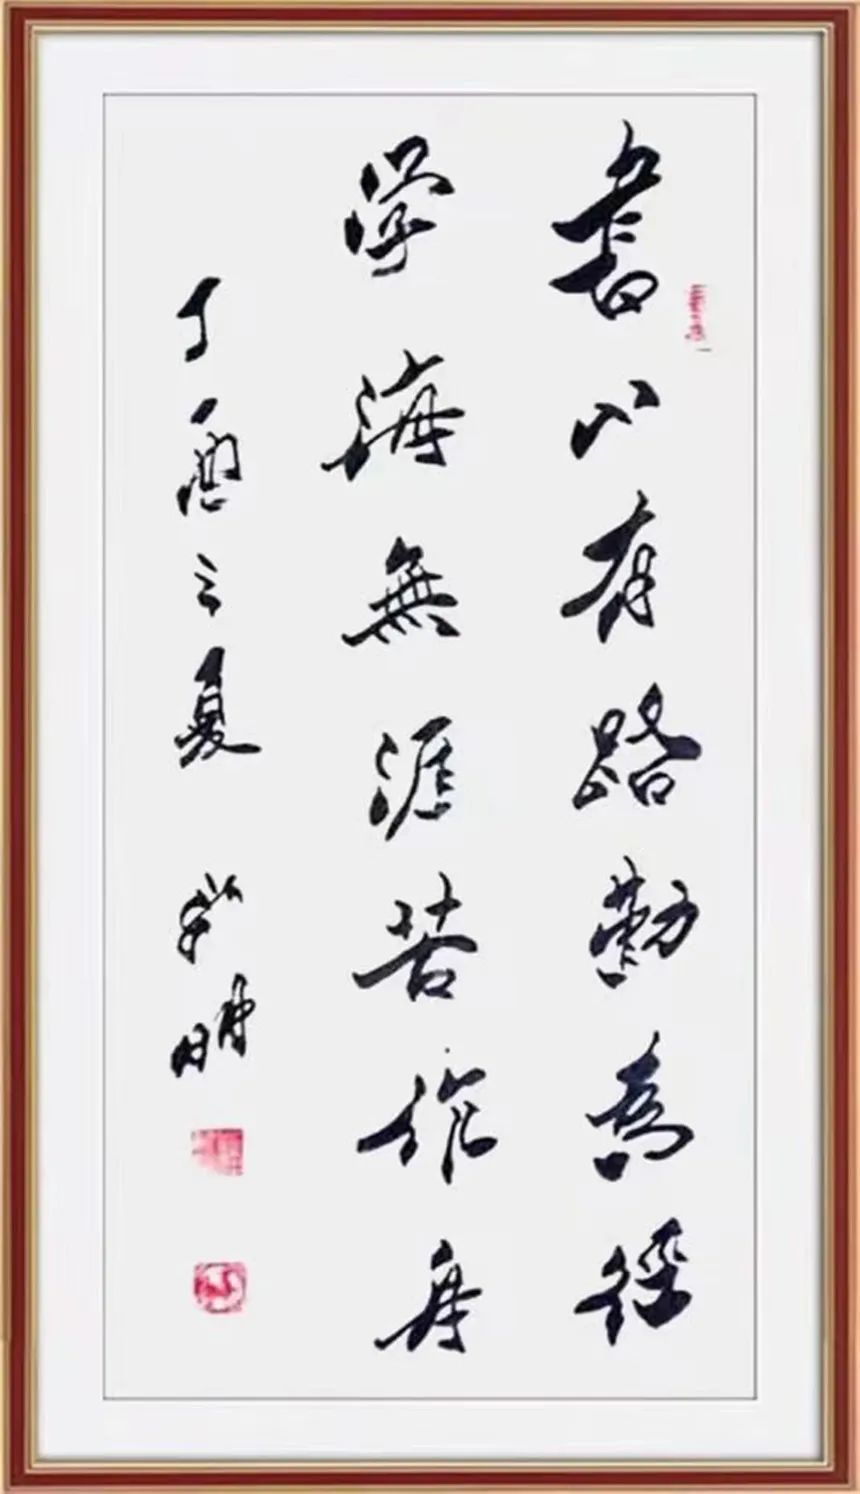 書山有路勤為徑
学海無涯苦作舟
丁酉之夏 明